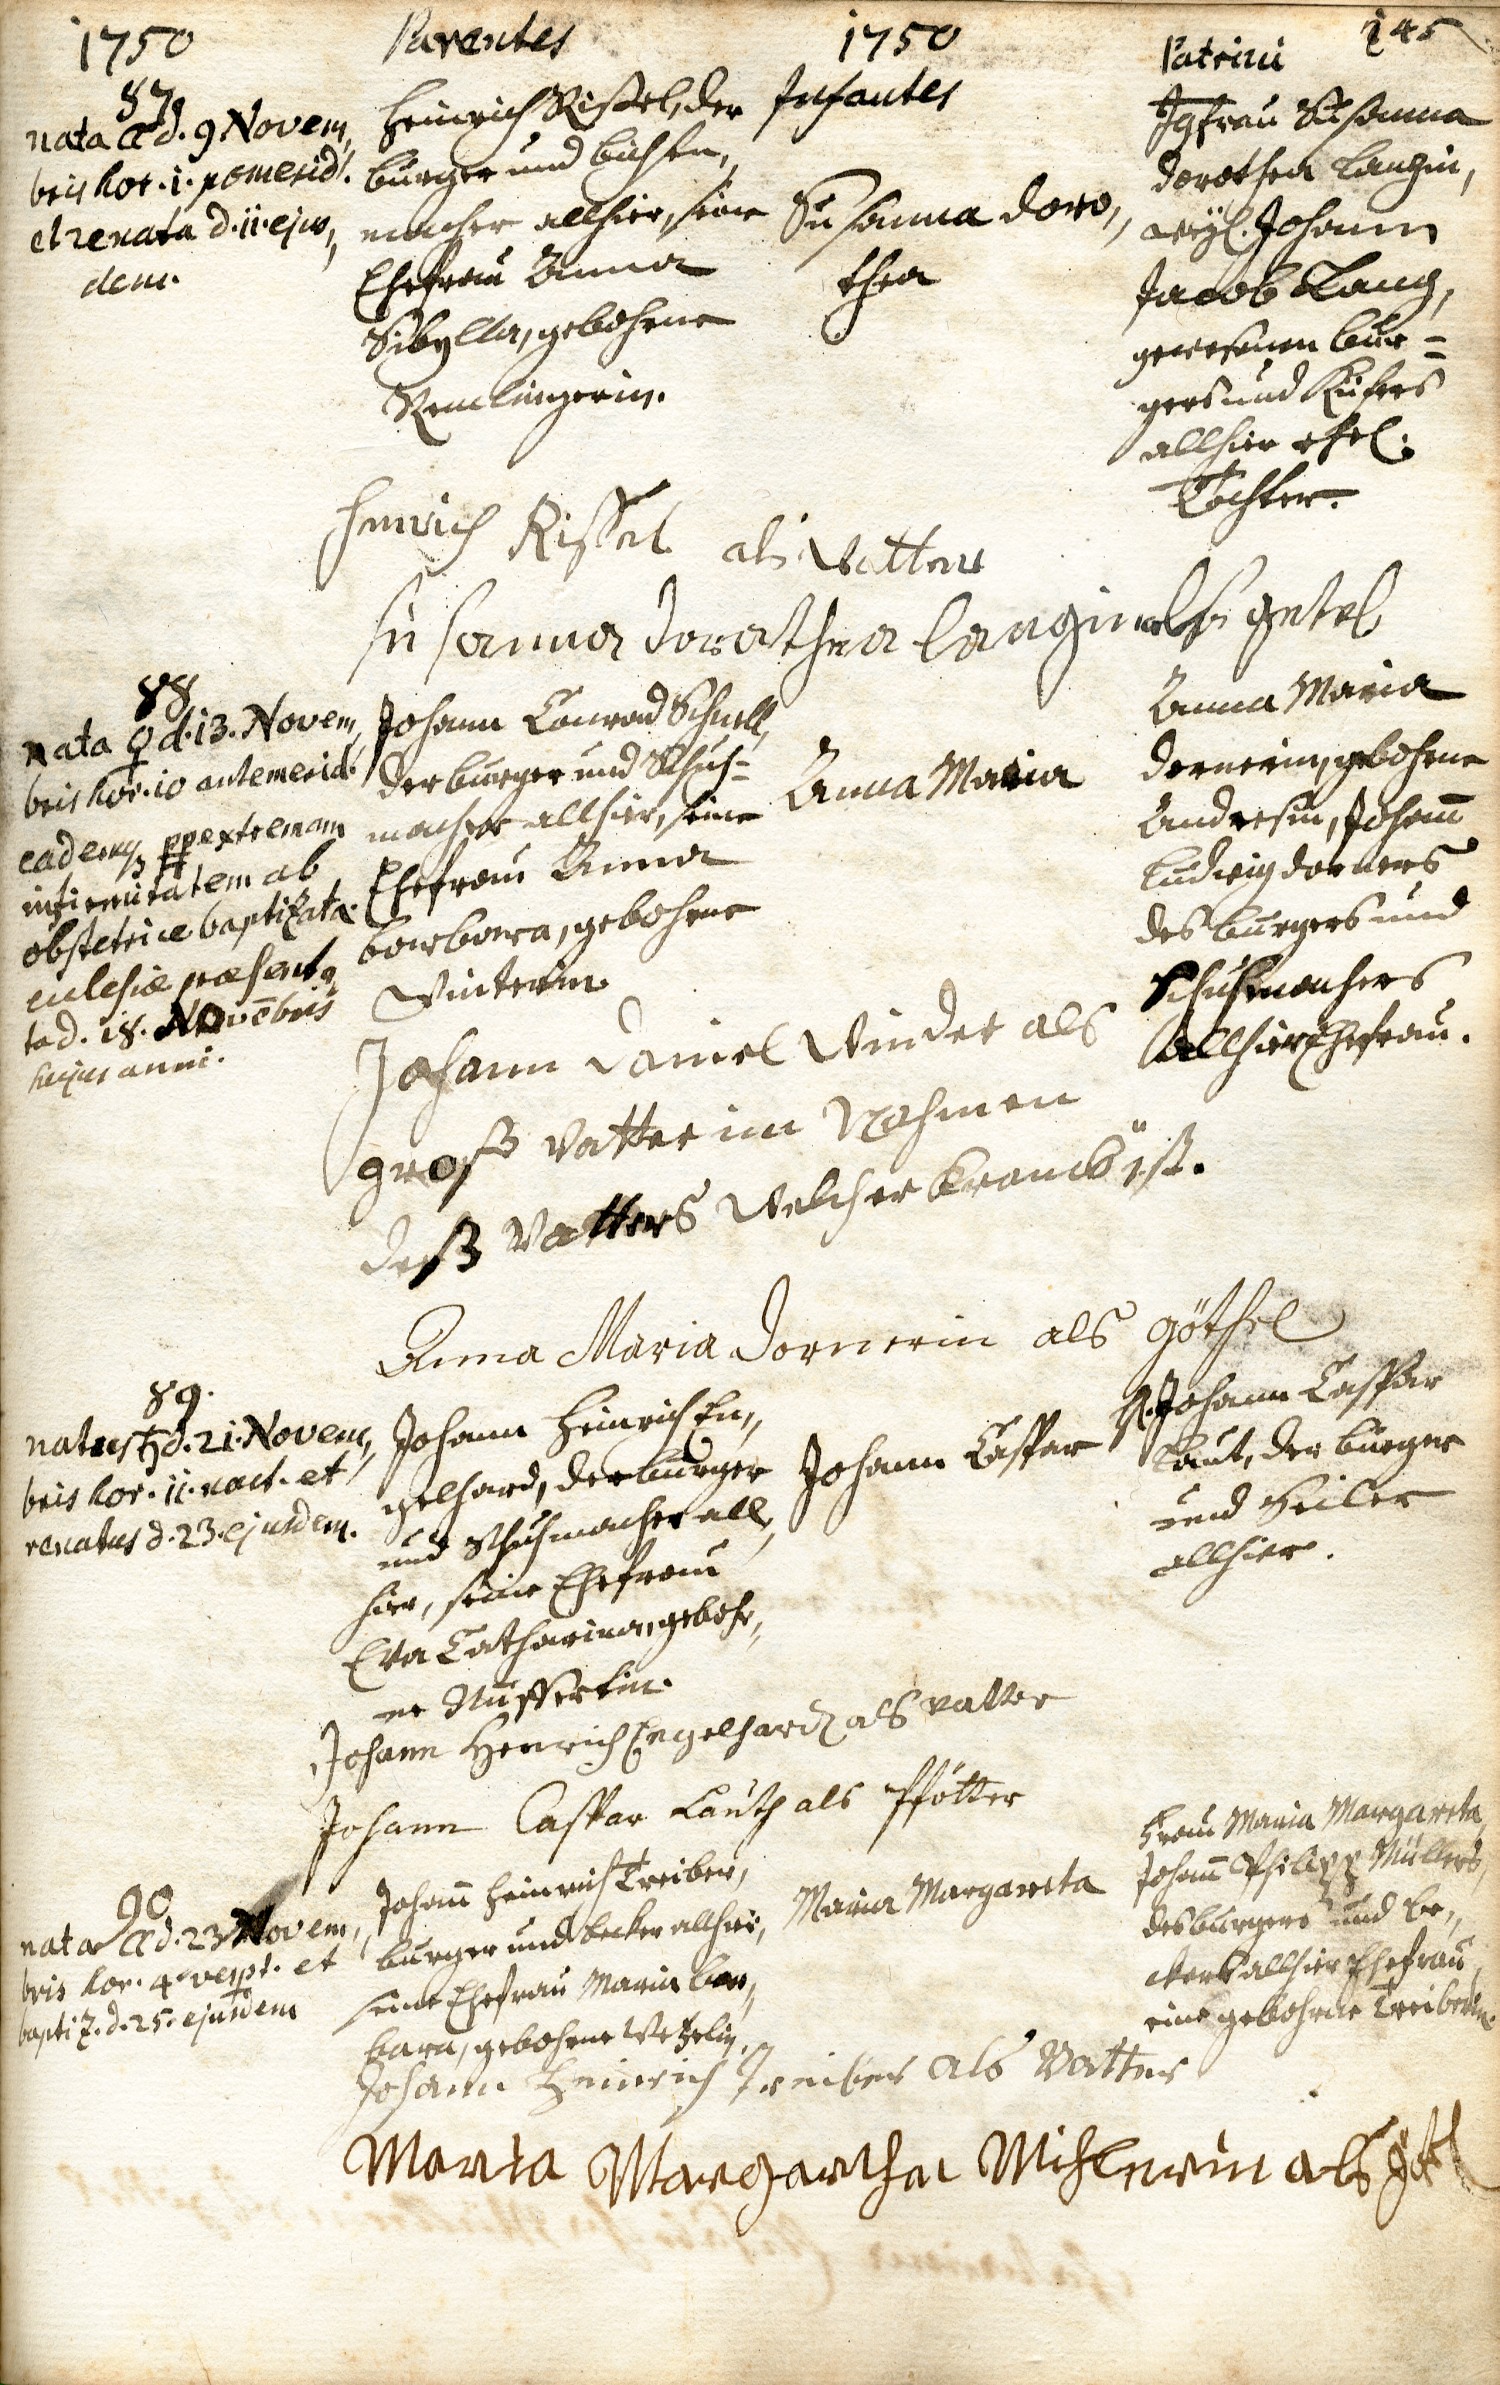 1750
Parentes
1750
Patrini
145
87.
nata ☾ d. 9 Novem,,
bris hor. 1. pomerid.
et renata d. 11. ejus,,
dem.
Heinrich Rissel, der
burger und bichsen,,
macher allhier, seine
Ehefrau Anna
Sibylla, gebohrne
Remlingerin.
Infantes
Susanna Doro,,
thea
Jgfrau Susanna
Dorothea Langin,
weyl. Johann
Jacob Lang,
gewesenen bur=
gers und Küfers
allhier ehel.
Tochter.
Henrich Rissel als Vatter
Susanna Dorathea Langin als getel
88.
nata ♀ d. 13. Novem,,
bris hor. 10 antemerid.
eademq3 pp extremam
infirmitatem ab
obstetrice baptizata.
eclesiæ præsenta
ta d. 18. Novēbris
hujus anni.
Johann Conrad Schnell,
der burger und Schuh=
macher allhier, seine
Ehefrau Anna
barbara, gebohrne
Winterin.
Anna Maria
Anna Maria
Dornerin, gebohrne
Andresin, Johañ
Ludwig Dorners
des burgers und
Schuhmachers
allhier Ehefrau.
Johann Daniel Winder als
groß Vatter im Nahmen
deß Vatters welcher kranck ist.
Anna Maria Dornerin als göthel
89.
natus ♄ d. 21. Novem,,
bris hor. 11. noct. et
renatus d. 23. ejusdem.
Johann Heinrich En,,
gelhard, der burger
und Schuhmacher all,,
hier, seine Ehefrau
Eva Catharina, gebohr,,
ne Nusserlin.
Johann Caspar
Johann Caspar
Laut, der burger
und Seiler
allhier.
Johann Henrich Engelhard als vatter
Johann Caspar Lauth als pfötter
90
nata ☾ d. 23 Novem,,
bris hor. 4. vespt. et
baptiz. d. 25. ejusdem
Johañ Heinrich Treiber,
burger und becker allhier,
seine Ehefrau Maria bar,,
bara, gebohrne Wetzelin.
Maria Margareta
Frau Maria Margareta,
Johañ Philipp Müllers,
des burgers und be,,
ckers allhier Ehefrau,
eine gebohrne Treiberin.
Johann Heinrich Treiber als Vatter
Maria Margaretha Mihlerin als göt